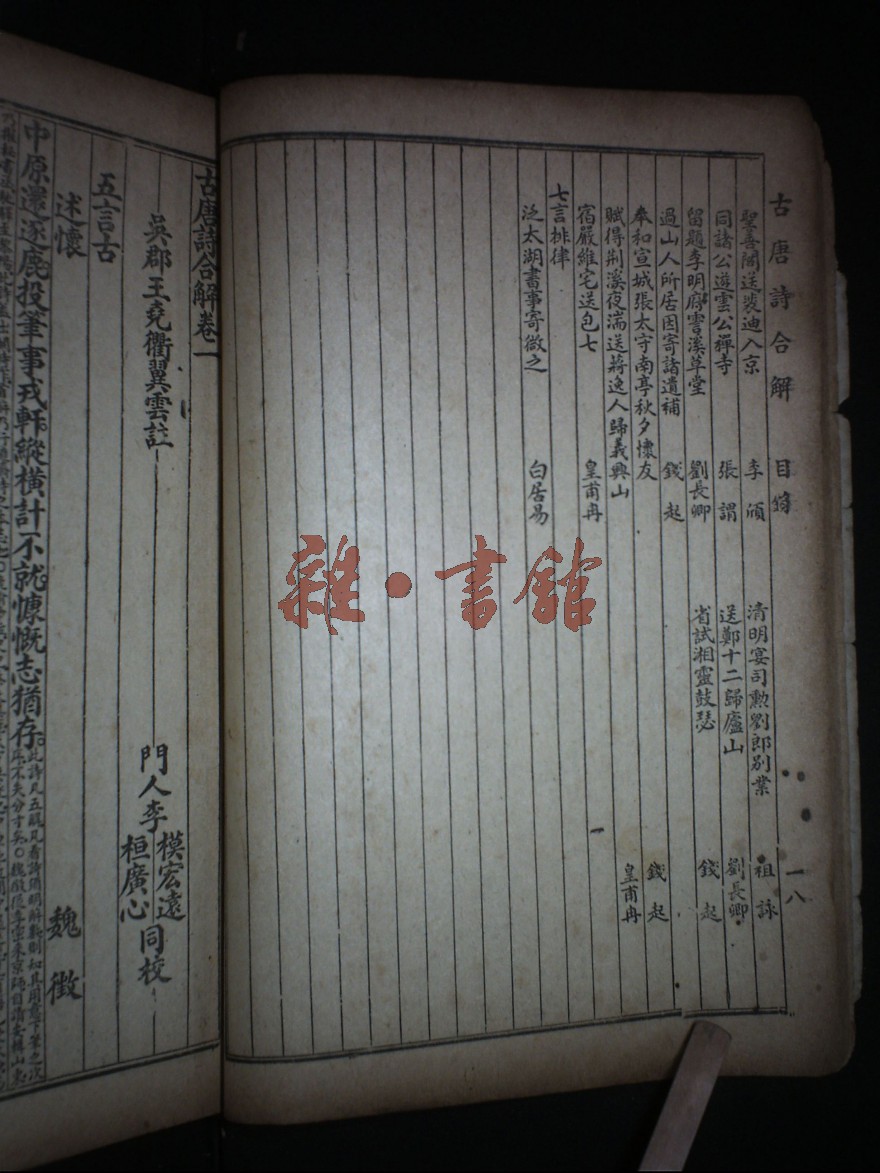 古唐詩合解 目錄 一八
聖善閣送裴迪入京 李頎 清明宴司勲劉郎別業 祖詠
同諸公遊雲公禪寺 張謂 送鄭十二歸廬山 劉長卿
留題李明府霅溪草堂 劉長卿 省試湘靈鼓瑟 錢起
過山人所居因寄諸遺補 錢起
奉和宣城張太守南亭秋夕懷友 錢起
賦得荆溪夜湍送蔣逸人歸義興山 皇甫冉
宿嚴維宅送包七 皇甫冉
七言排律
泛太湖書事寄微之 白居易
雜·書館
古唐詩合解卷一
吳郡王堯衢翼雲註
門人李模宏遠桓廣心同校
五言古
述懷 魏徵
中原還逐鹿投筆事戎軒縱橫計不就慷慨志猶存
此詩凡五解凡看詩須明解數則知其用意下筆之次
序不失分寸矣〇魏徵